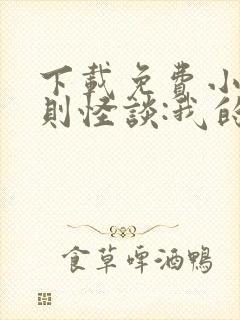 下載免費小
則怪談:我的
食草啤酒鴨